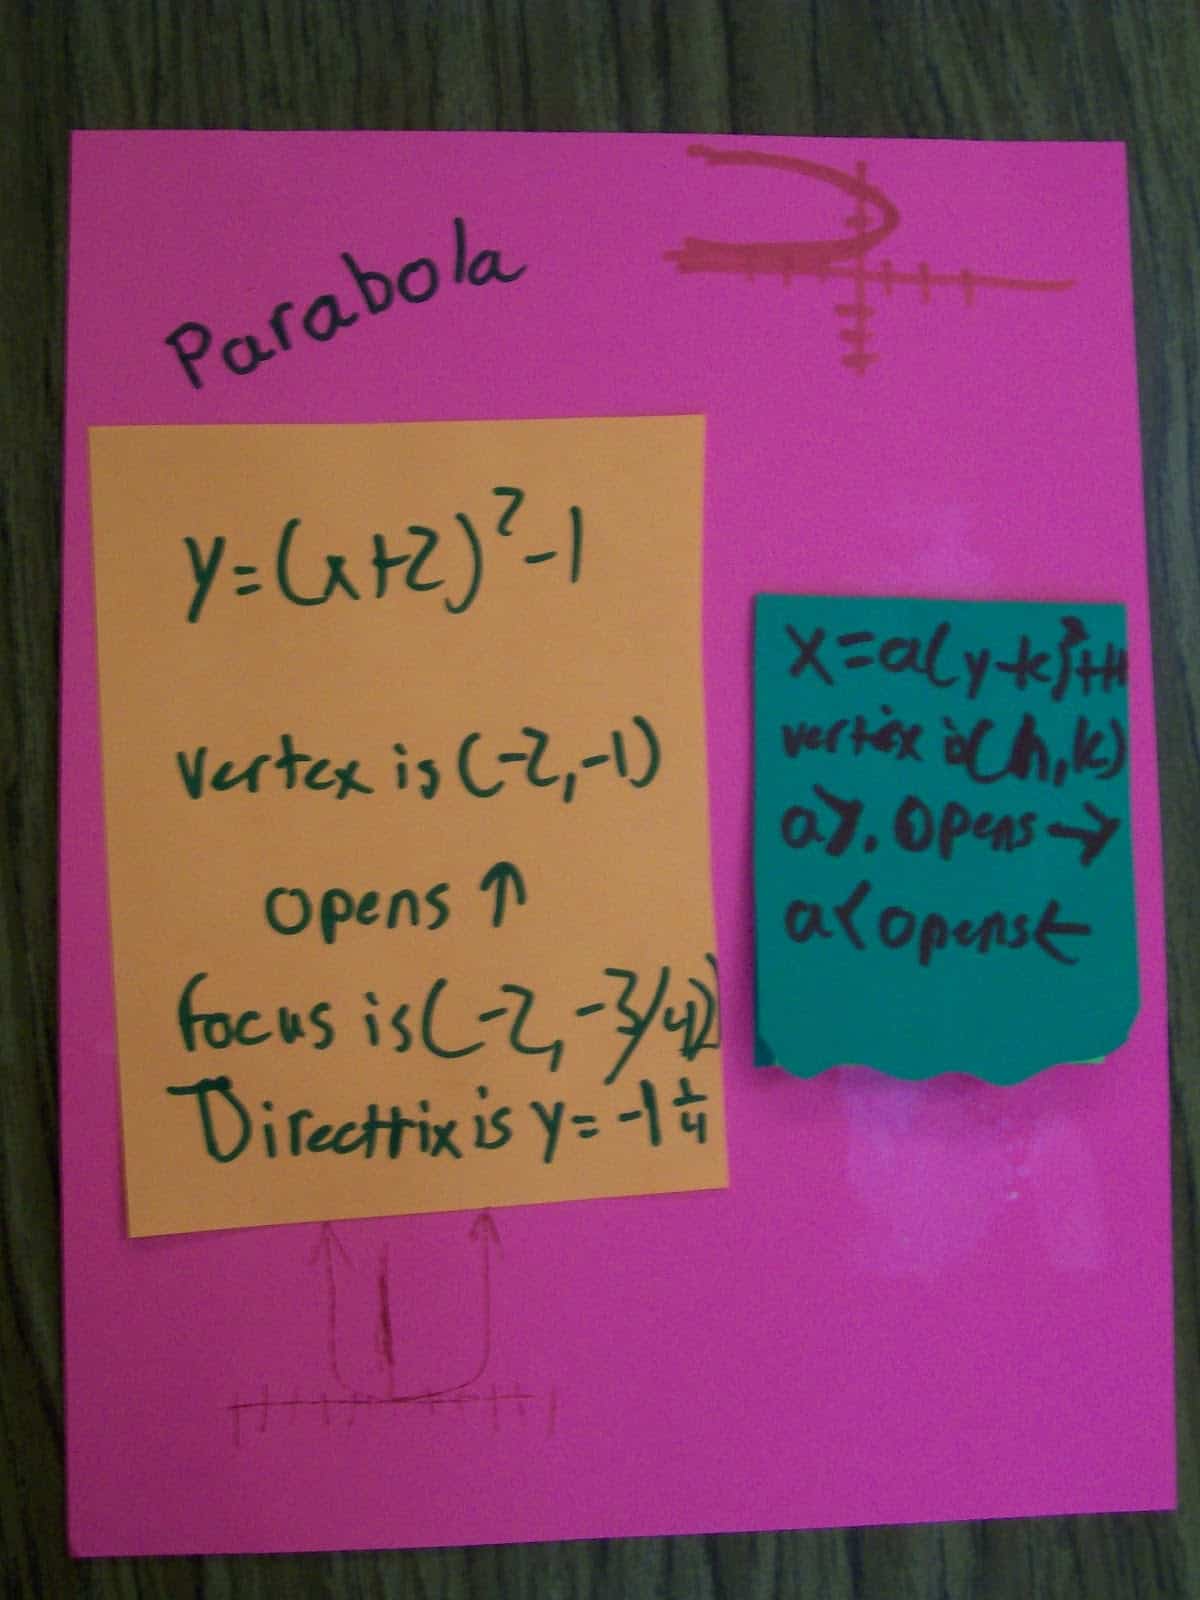 Parabola
y=(x+2)²-1
vertex is (-2,-1)
opens ↑
focus is (-2, -3/4)
Directtrix is y= -1 1/4
x=a(y-k)²+h
vertex is (h,k)
a>. opens →
a< opens ←